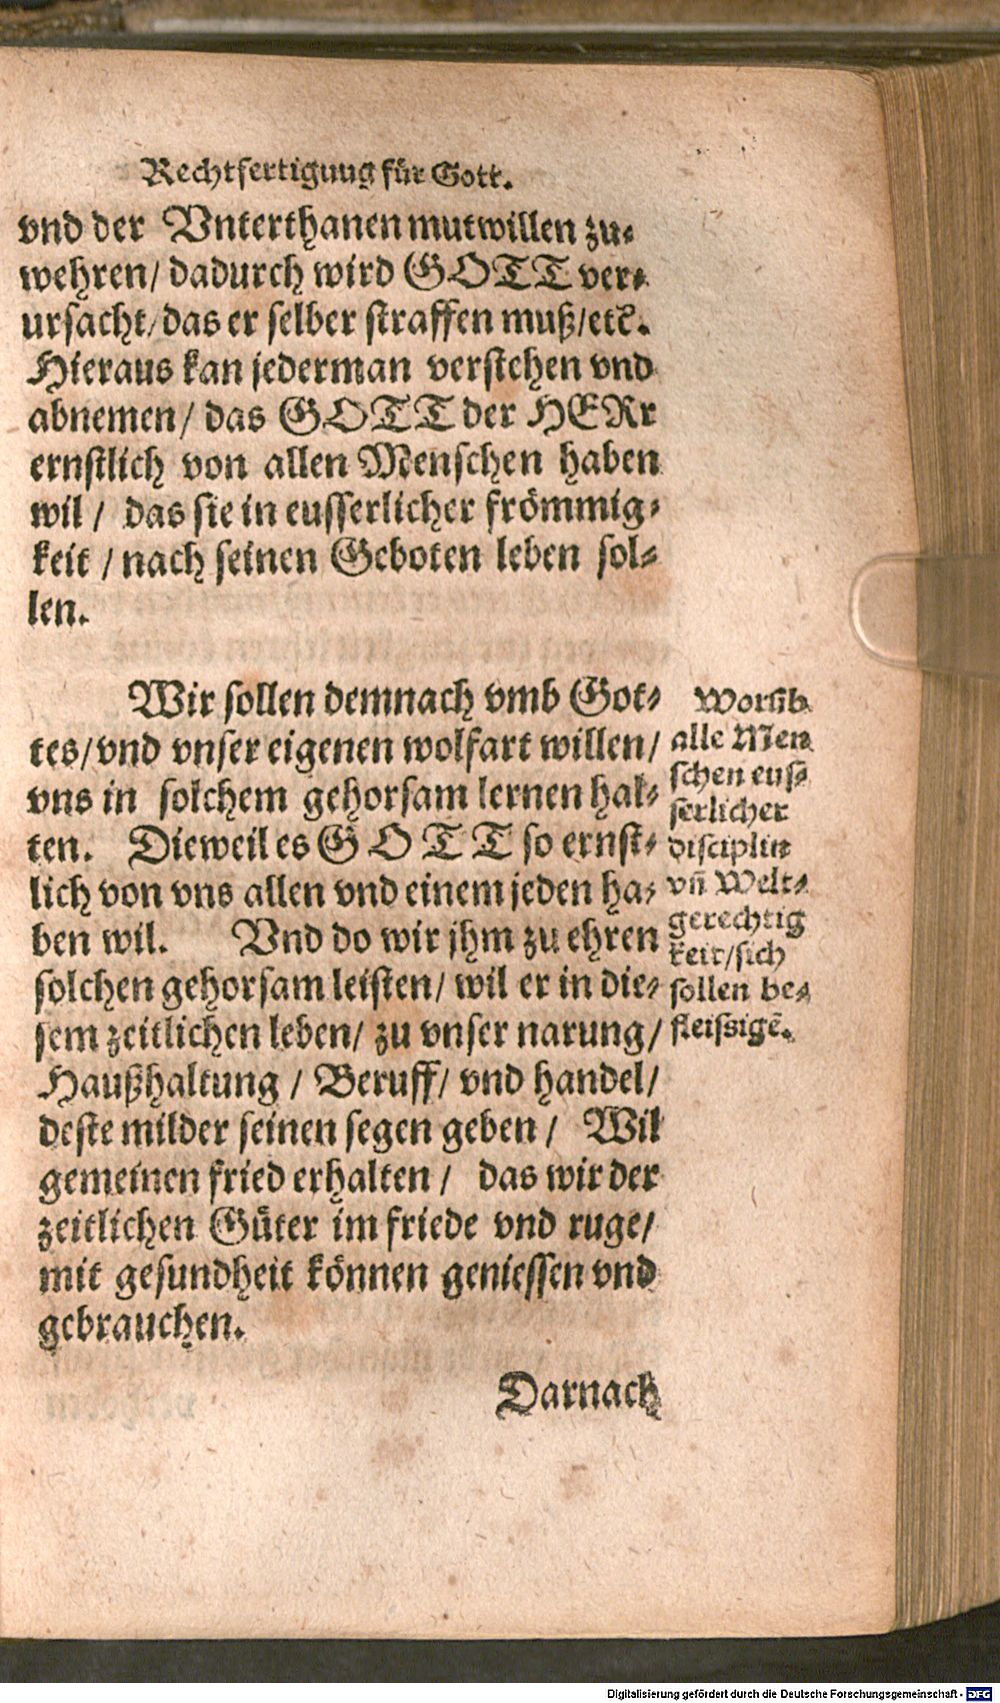 Rechtfertigung für Gott.
vnd der Vnterthanen mutwillen zu-
wehren/ dadurch wird GOTT ver-
ursacht/ das er selber straffen muß/ etc̃.
Hieraus kan jederman verstehen vnd
abnemen/ das GOTT der HERr
ernstlich von allen Menschen haben
wil/ das sie in eusserlicher frömmig-
keit/ nach seinen Geboten leben sol-
len.
Wir sollen demnach vmb Got-
tes/ vnd vnser eigenen wolfart willen/
vns in solchem gehorsam lernen hal-
ten. Dieweil es GOTT so ernst-
lich von vns allen vnd einem jeden ha-
ben wil. Vnd do wir jhm zu ehren
solchen gehorsam leisten/ wil er in die-
sem zeitlichen leben/ zu vnser narung/
Haußhaltung/ Beruff/ vnd handel/
deste milder seinen segen geben/ Wil
gemeinen fried erhalten/ das wir der
zeitlichen Güter im friede vnd ruge/
mit gesundheit können geniessen vnd
gebrauchen.
Worũb
alle Men
schen eus-
serlicher
disciplin
vñ Welt-
gerechtig
keit/ sich
sollen be-
fleissigẽ.
Darnach
Digitalisierung gefördert durch die Deutsche Forschungsgemeinschaft - DFG